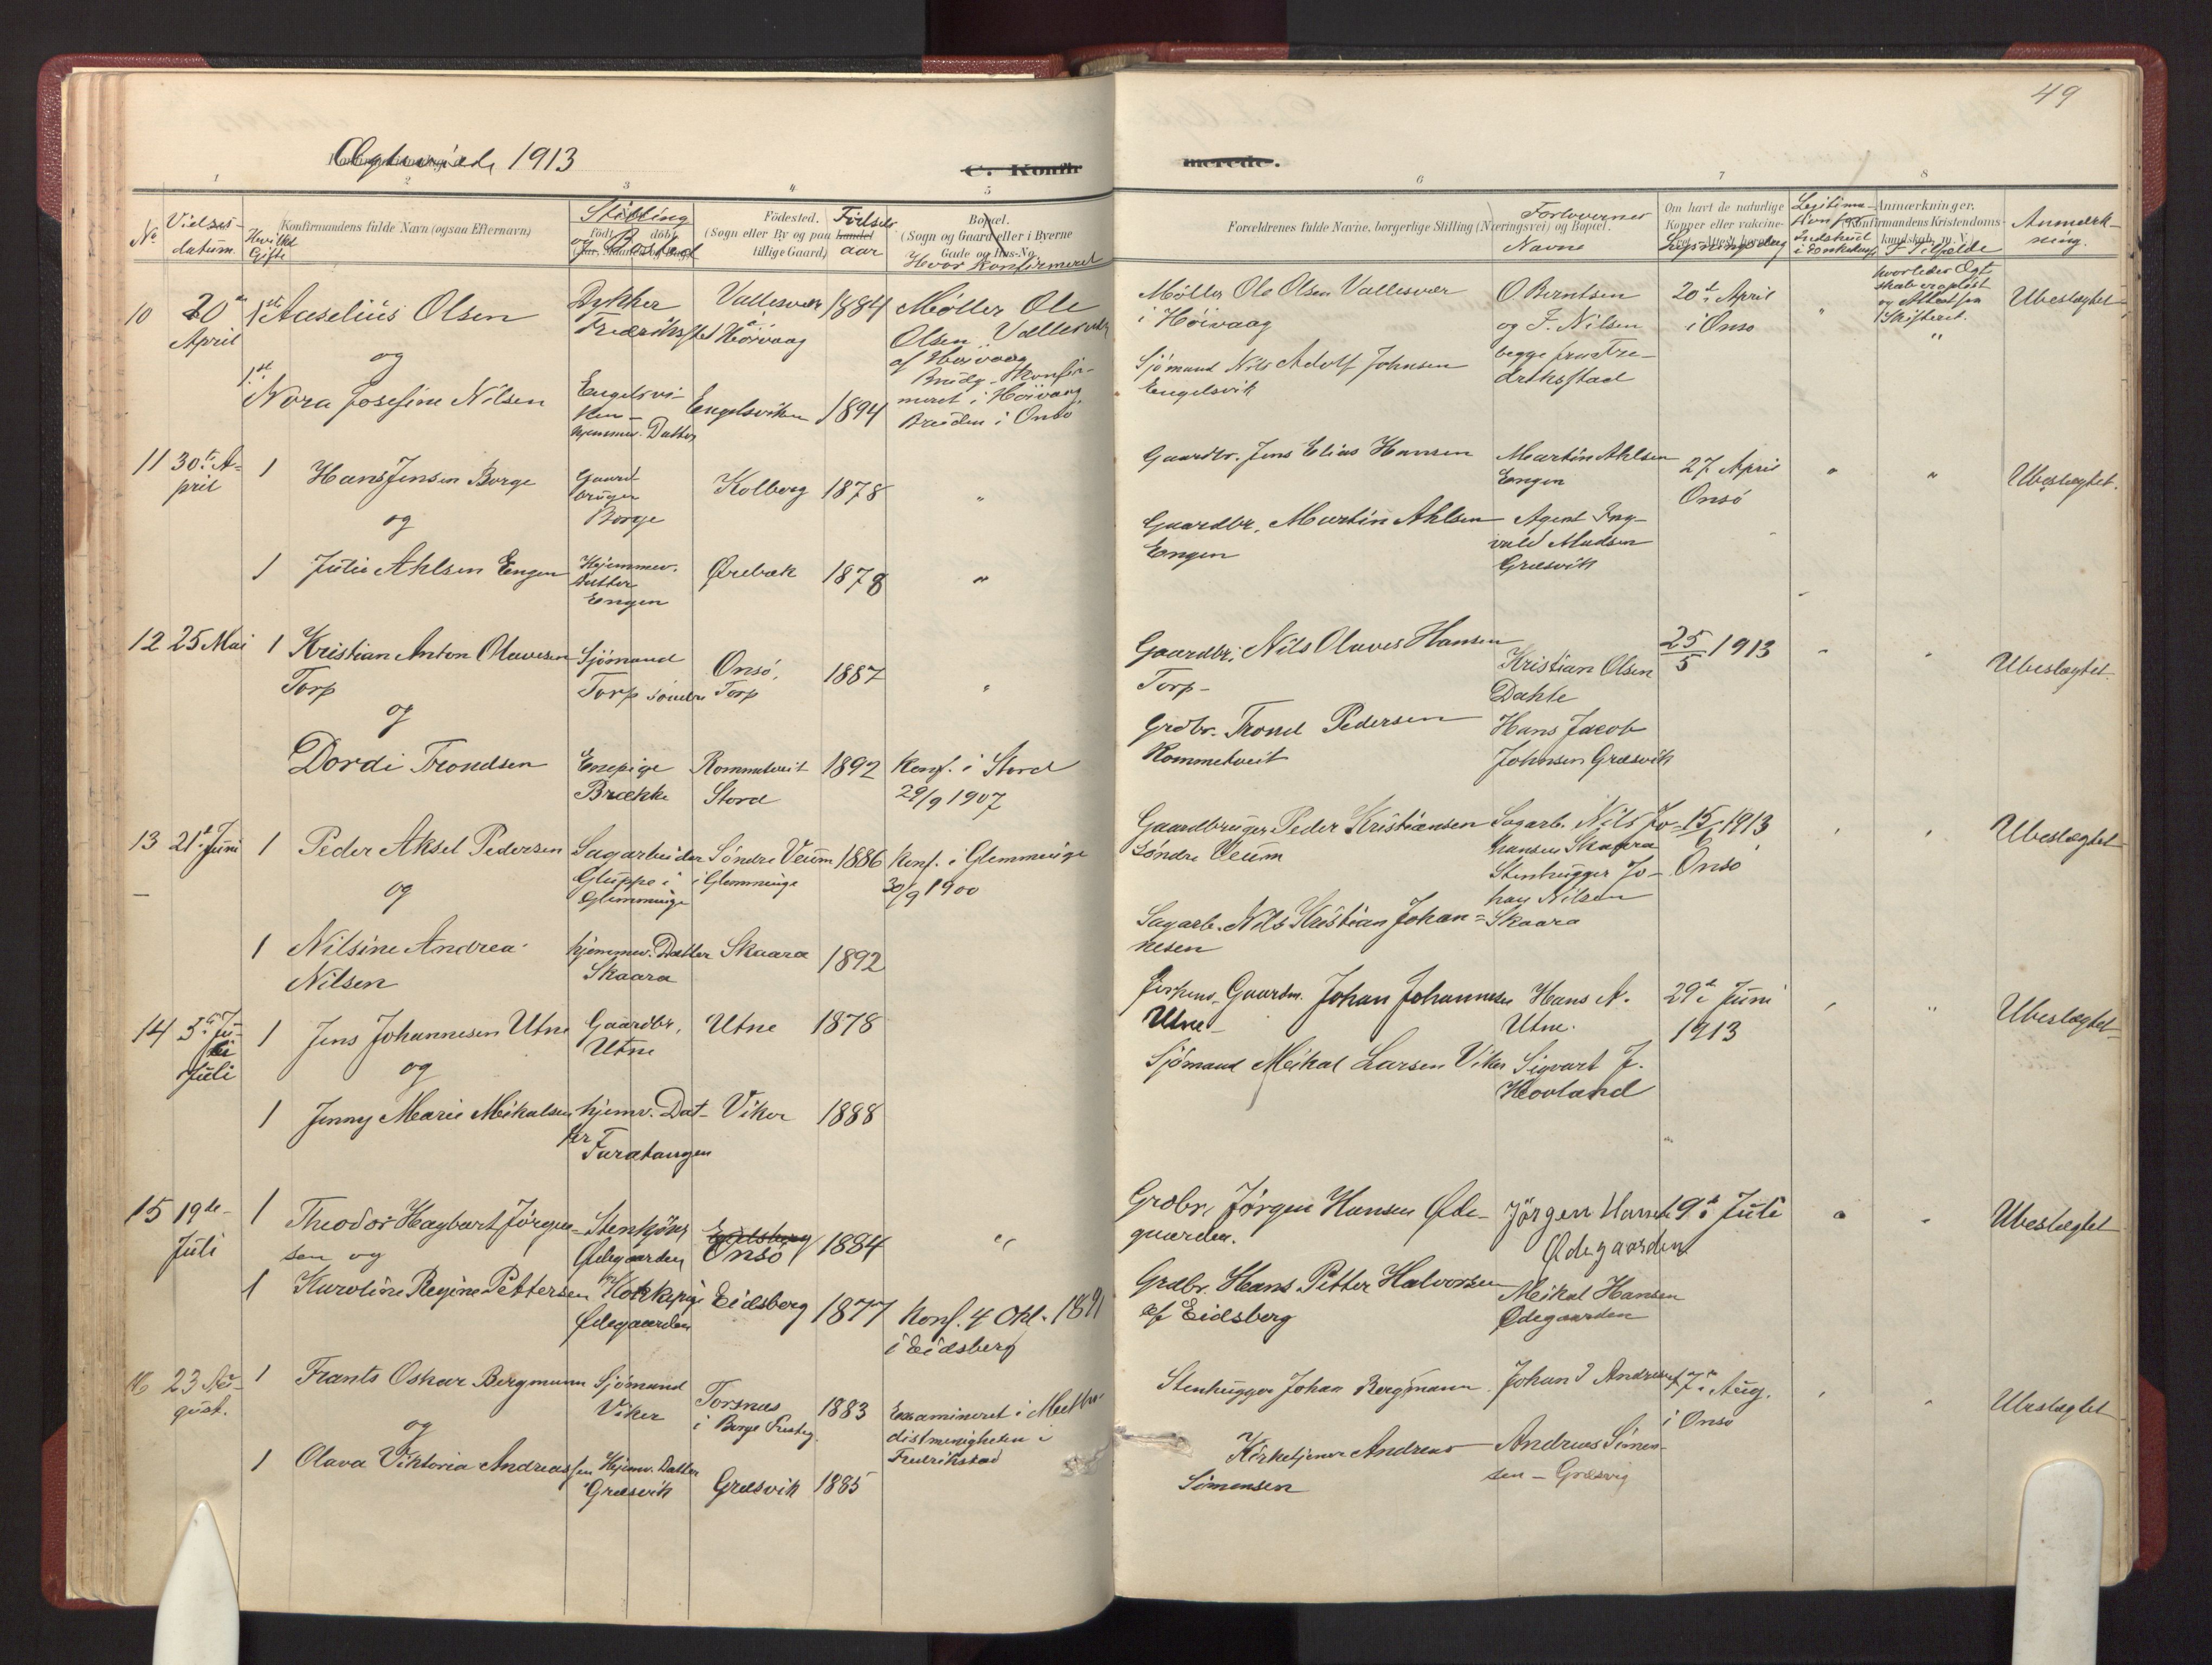 49
Ægteviede 1913
C. Konfir
merede.
1 2 3 4 5 6 7 8
No
Vielses-
datum.
Hvilket
Gifte
Konfirmandens fulde Navn (ogsaa Efternavn)
Stilling
og Bosted
Født døbt
Fødested.
(Sogn eller By og paa Landet
tillige Gaard)
Fødsels
aar
Bopæl.
(Sogn og Gaard eller i Byerne
Gade og Hus-No.
Hvor konfirmeret
Forældrenes fulde Navne, borgerlige Stilling (Næringsvei) og Bopæl.
Forlovernes
Navne
Om havt de naturlige
Kopper eller vakcine-
Lysningsdag
Anmærkninger.
(Konfirmandens Kristendoms-
kundskab m. V.)
I Tilfælde
hvorledes Ægt
skab er opløst
og Attest fra
Skifteret.
Anmærk-
ning.
10 20de April 1ste Aaselius Olsen
og
Dykker
Fredrikstad
Vallesvær
i Høivaag
1884
Møller Ole
Olsen Vallesvær
af Høivaag
Brudg. Konfir-
meret i Høivaag,
Bruden i Onsø
Møller Ole Olsen Vallesvær
i Høivaag
O Berntsen
og F. Nilsen
begge fra Fre-
driksstad
20de April
i Onsø
" "
Ubeslægtet
1ste Nora Josefine Nilsen
Engelsvi-
ken
hjemmev. Datter
Engelsviken 1894
Sjømand Nils Adolf Johnsen
Engelsvik
11 30te A-
pril
1 Hans Jensen Borge
og
Gaard-
bruger
Borge
Kolberg 1878 "
Gaardbr. Jens Elias Hansen
Martin Ahlsen
Engen
27 April
Onsø
" "
Ubeslægtet.
1 Julie Ahlsen Engen
Hjemmev.
Datter
Engen
Ørebæk 1878 "
Gaardbr. Martin Ahlsen
Engen
Agent Ing-
vald Madsen
Græsvik
12 25 Mai 1 Kristian Anton Olavesen
Torp
og
Sjømand
Torp søndre
Onsø,
Torp
1887 "
Gaardbr. Nils Olaves Hansen
Torp
Kristian Olsen
Dahle
25/5 1913
" "
Ubeslægtet.
Dordi Trondsen
Enepige
Brække
Rommetveit
Stord
1892
Konf. i Stord
29/9 1907
Grdbr. Trond Pedersen
Rommetveit
Hans Jacob
Johnsen Græsvik
13 21de Juni 1 Peder Aksel Pedersen
og
Sagarbeider
Gluppe i
Glemminge
Søndre Veum
i Glemminge
1886
Konf. i Glemminge
30/9 1900
Gaardbruger Peder Kristiansen
Søndre Veum
Sagarb. Nils Jo-
hansen Skaara
Stenhugger Jo-
han Nilsen
Skaara
15/6 1913
Onsø
" "
Ubeslægtet
1 Nilsine Andrea
Nilsen
hjemmev. Datter
Skaara
Skaara 1892
Sagarb. Nils Kristian Johan-
nesen
14 5te Ju-
li
Juli
1 Jens Johannesen Utne
og
Gaardbr.
Utne
Utne 1878
Gaardm. Johan Johannesen
Utne
Hans A.
Utne.
29de Juni
1913
" "
Ubeslægtet
1 Jenny Marie Mikalsen
hjemv. Dat-
ter
Furutangen
Viker 1888
Sjømand Mikal Larsen Viker
Sigvart J.
Hovland
15 19de
Juli
1 Theodor Hagbart Jørgen-
sen og
Ødegaarden
Eidsberg
Onsø
1884 "
Grdbr. Jørgen Hansen Øde-
gaarden.
Jørgen Hansen
Ødegaarden
9de Juli
" "
Ubeslægtet
1 Karoline Regine Pettersen
Kokkepige
Ødegaarden
Eidsberg 1877
Konf. 4 Okt. 1891
i Eidsberg
Grdbr. Hans Petter Halvorsen
af Eidsberg
Mikal Hansen
Ødegaarden
16 23 Au-
gust.
1 Frants Oskar Bergmann
og
Sjømand
Viker
Torsnæs
i Borge Presteg.
1883
Examineret i Metho-
distmenigheten i
Fredrikstad
Stenhugger Johan Bergmann
Johan Andresen
17de Aug.
i Onsø
" "
Ubeslægtet
1 Olava Viktoria Andreassen
Hjemv. Datter
Græsvik
Græsvik 1885
Kirketjener Andreas
Simensen
Andreas Simen-
sen - Græsvig